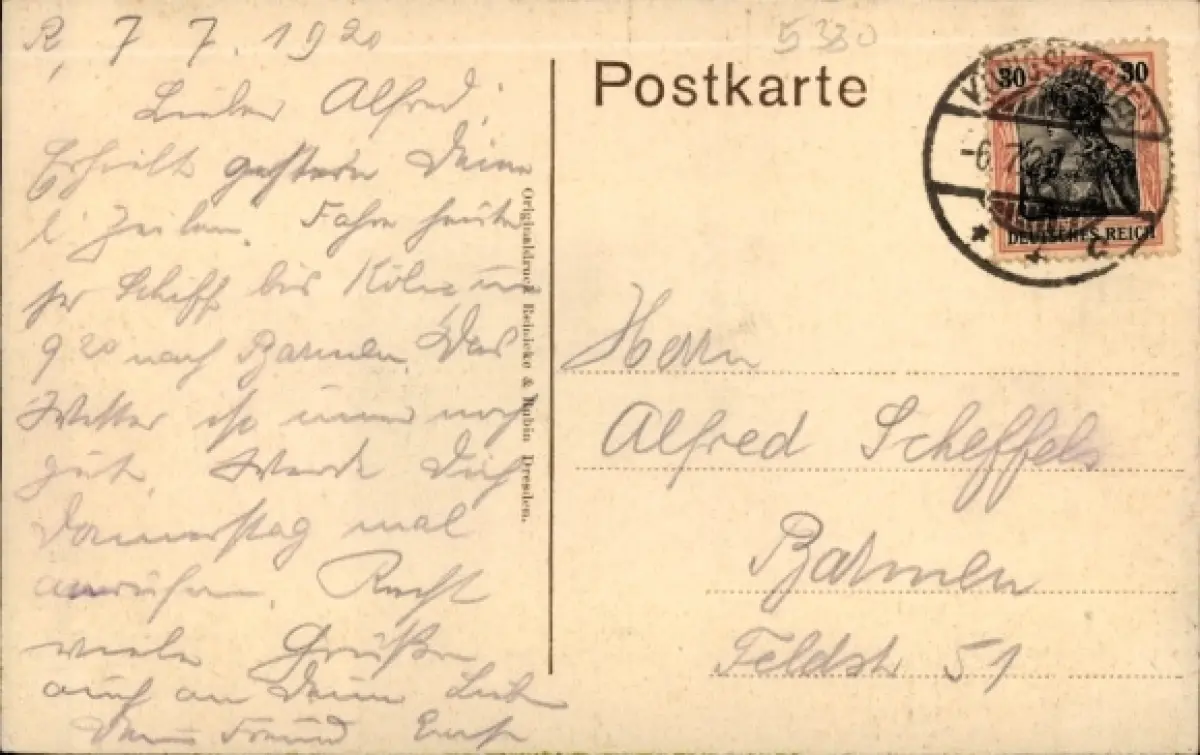 R, 7 7. 1920
5380
Lieber Alfred!
Erhielt gestern Deine
l. Zeilen. Fahre heute
per Schiff bis Köln um
9 20 nach Barmen. Das
Wetter ist immer noch
gut. Werde Dich
Donnerstag mal
anrufen. Recht
viele Grüße
auch an Deine
Dein Freund Ernst
Originaldruck Reinicke & Rubin Dresden.
Postkarte
30 30
DEUTSCHES REICH
KÖNIGSWINTER
-6.7.20
* * c
Herrn
Alfred Scheffels
Barmen
Feldstr 51